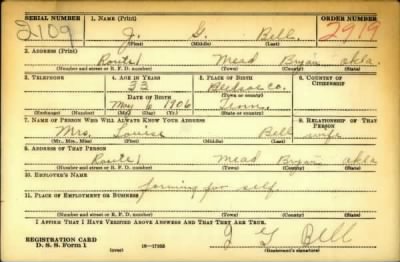 SERIAL NUMBER 1. NAME (Print) ORDER NUMBER
2109 J. G. Bell 2919
(First) (Middle) (Last)
2. ADDRESS (Print)
Route 1 Mead Bryan Okla.
(Number and street or R. F. D. number) (Town) (County) (State)
3. TELEPHONE 4. AGE IN YEARS 5. PLACE OF BIRTH 6. COUNTRY OF CITIZENSHIP
33 Bledsoe Co.
DATE OF BIRTH (Town or county)
May 6 1906 Tenn.
(Exchange) (Number) (Mo.) (Day) (Yr.) (State or country)
7. NAME OF PERSON WHO WILL ALWAYS KNOW YOUR ADDRESS 8. RELATIONSHIP OF THAT PERSON
Mrs. Louise Bell wife
(Mr., Mrs., Miss) (First) (Middle) (Last)
9. ADDRESS OF THAT PERSON
Route 1 Mead Bryan Okla
(Number and street or R. F. D. number) (Town) (County) (State)
10. EMPLOYER'S NAME
farming for self
11. PLACE OF EMPLOYMENT OR BUSINESS
(Number and street or R. F. D. number) (Town) (County) (State)
I AFFIRM THAT I HAVE VERIFIED ABOVE ANSWERS AND THAT THEY ARE TRUE.
REGISTRATION CARD
D. S. S. FORM 1 (over) 16—17105 J G Bell
(Registrant's signature)